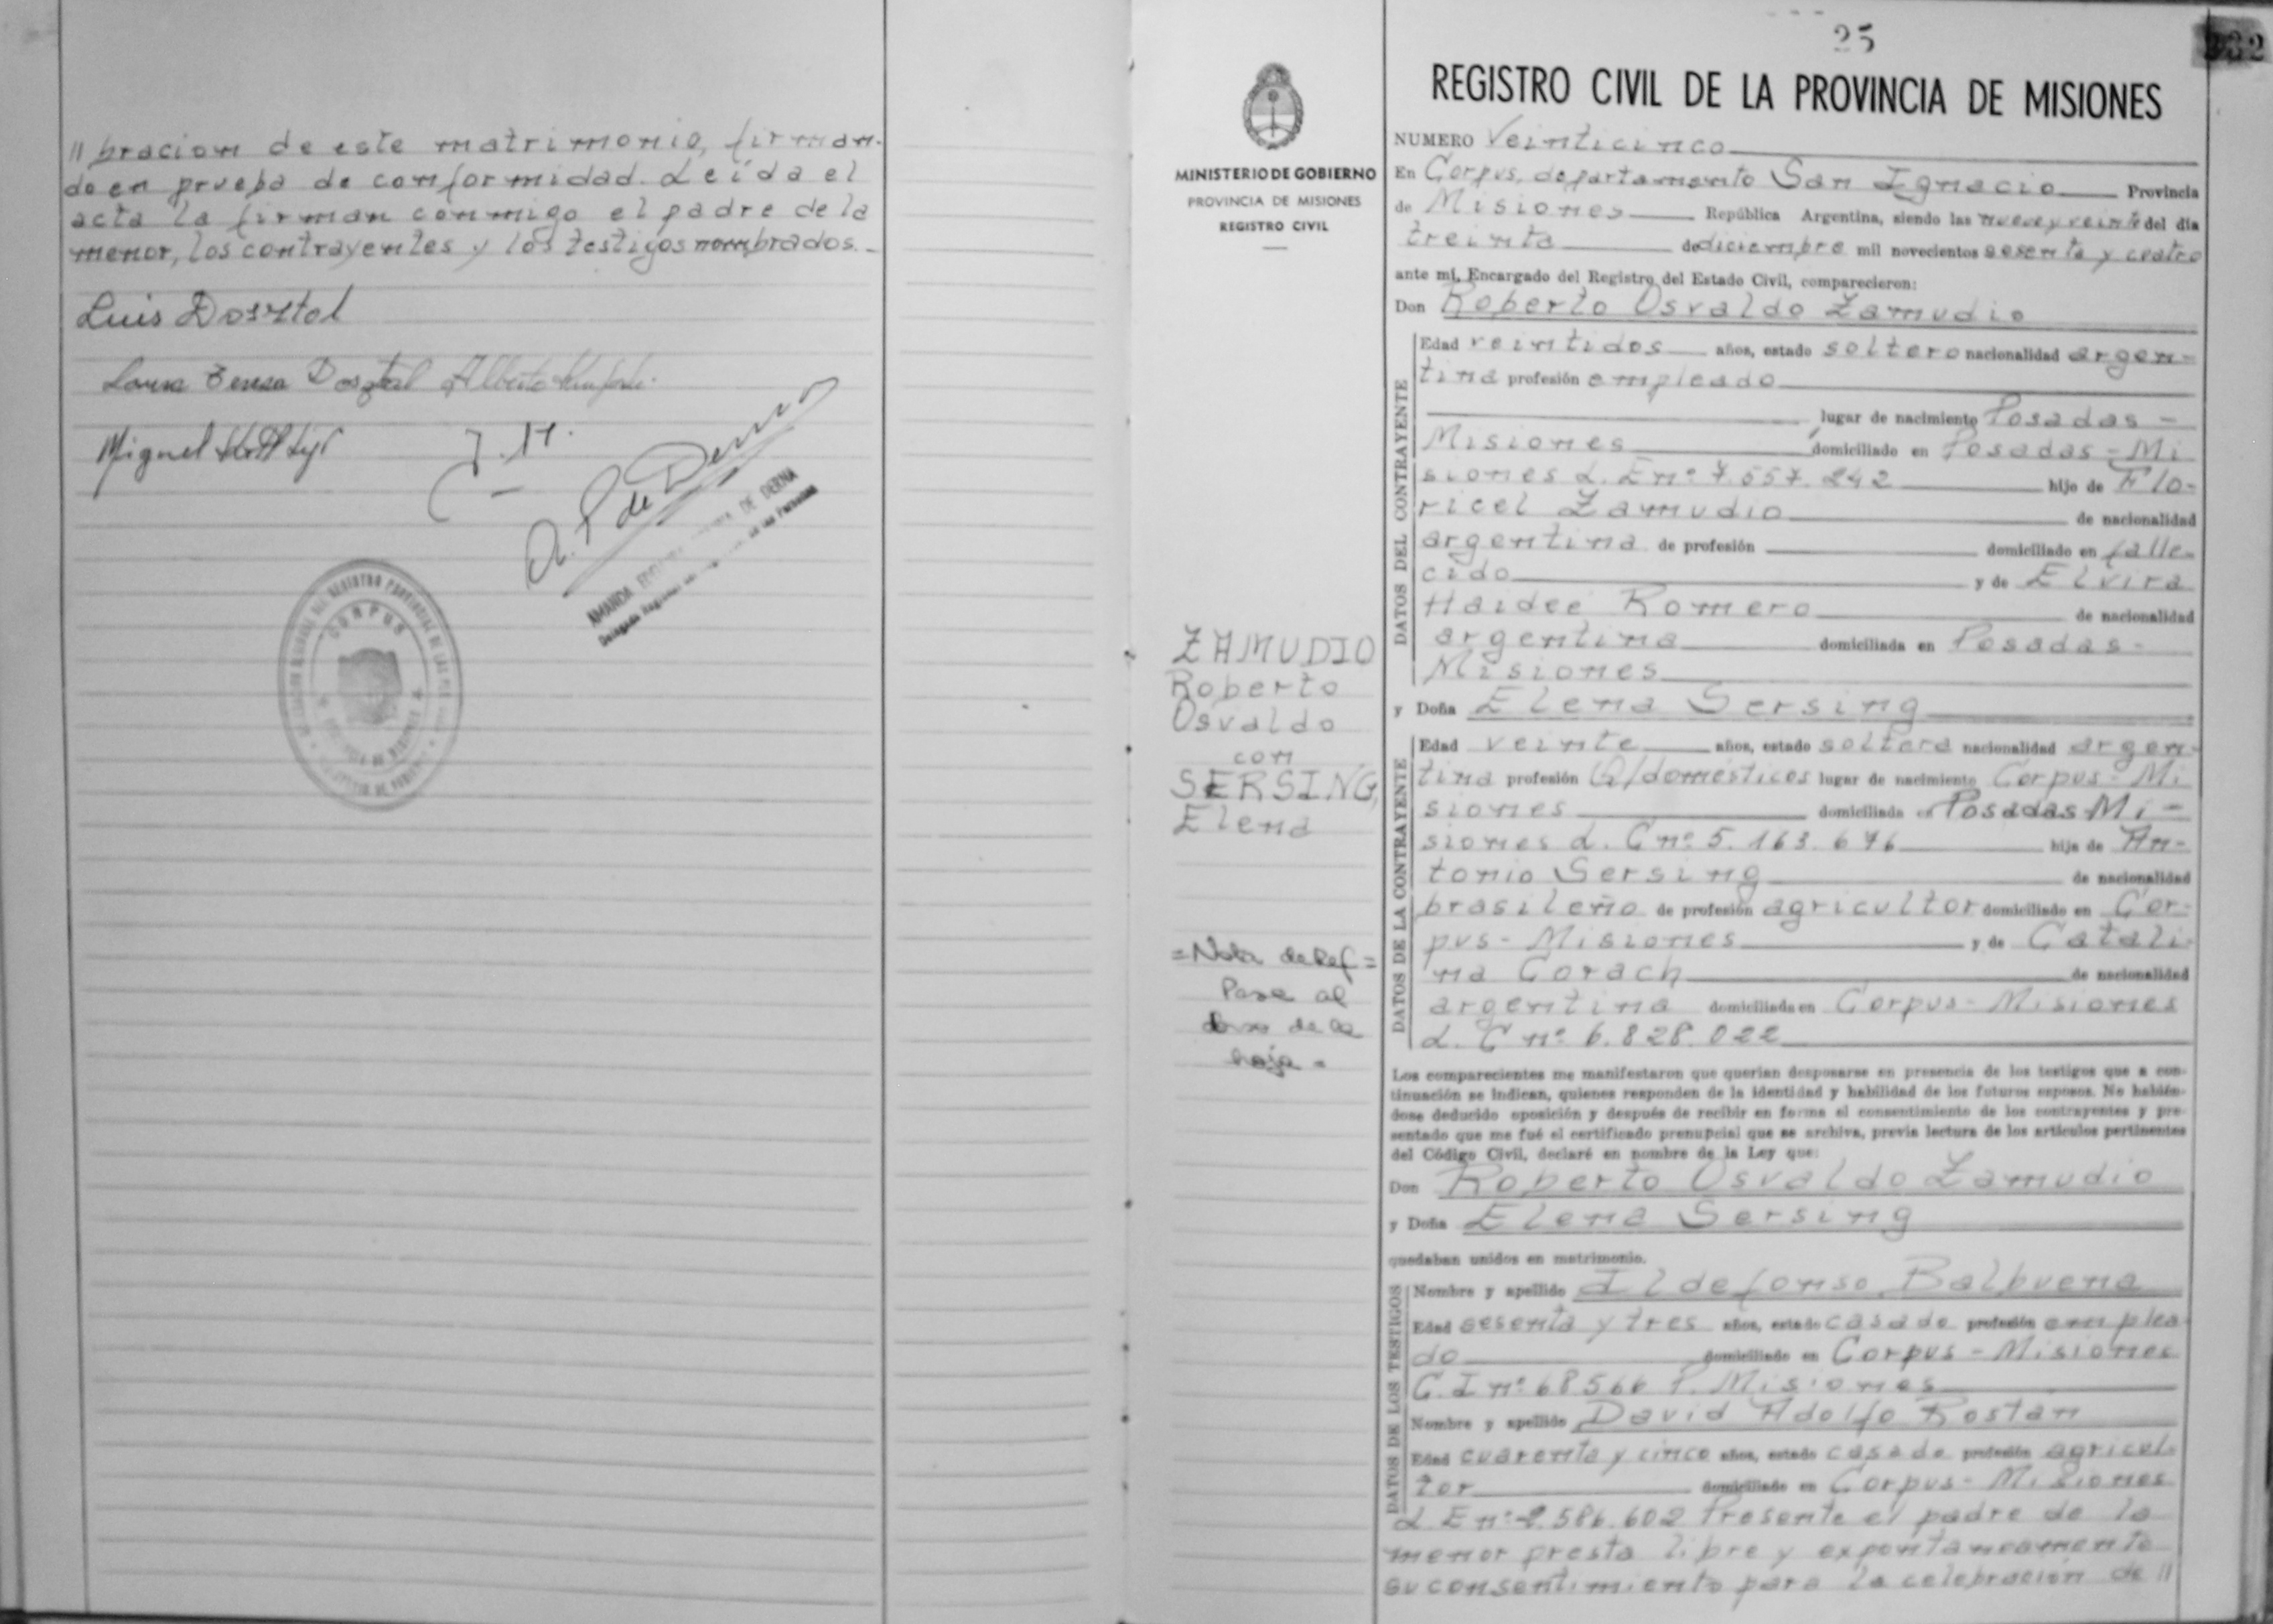 // bracion de este matrimonio, firman-
do en prueba de conformidad. Leída el
acta la firman conmigo el padre de la
menor, los contrayentes y los testigos nombrados.-
Luis Dosztal
Dosztal Alberto
Miguel
J. H.
A. P. de Derna
AMANDA DE DERNA
CORPUS
25
REGISTRO CIVIL DE LA PROVINCIA DE MISIONES
MINISTERIO DE GOBIERNO
PROVINCIA DE MISIONES
REGISTRO CIVIL
ZAMUDIO
Roberto
Osvaldo
con
SERSING,
Elena
=Nota de Ref=
Pase al
dorso de la
hoja =
NUMERO Veinticinco
En Corpus, departamento San Ignacio Provincia
de Misiones República Argentina, siendo las nueve y veinte del día
treinta de diciembre mil novecientos sesenta y cuatro
ante mí, Encargado del Registro del Estado Civil, comparecieron:
Don Roberto Osvaldo Zamudio
DATOS DEL CONTRAYENTE
Edad veintidos años, estado soltero nacionalidad argen-
tina profesión empleado
lugar de nacimiento Posadas-
Misiones domiciliado en Posadas-Mi
siones L. E nº 7.557.242 hijo de Flo-
ricel Zamudio de nacionalidad
argentina de profesión domiciliado en falle-
cido y de Elvira
Haidee Romero de nacionalidad
argentina domiciliada en Posadas-
Misiones
y Doña Elena Sersing
DATOS DE LA CONTRAYENTE
Edad veinte años, estado soltera nacionalidad argen-
tina profesión Q/domésticos lugar de nacimiento Corpus-Mi
siones domiciliada en Posadas-Mi-
siones L. C nº 5.163.676 hija de An-
tonio Sersing de nacionalidad
brasileño de profesión agricultor domiciliado en Cor-
pus-Misiones y de Catali-
na Corach de nacionalidad
argentina domiciliada en Corpus-Misiones
L. C nº 6.828.022
Los comparecientes me manifestaron que querían desposarse en presencia de los testigos que a con-
tinuación se indican, quienes responden de la identidad y habilidad de los futuros esposos. No habién-
dose deducido oposición y después de recibir en forma el consentimiento de los contrayentes y pre-
sentado que me fué el certificado prenupcial que se archiva, previa lectura de los artículos pertinentes
del Código Civil, declaré en nombre de la Ley que:
Don Roberto Osvaldo Zamudio
y Doña Elena Sersing
quedaban unidos en matrimonio.
DATOS DE LOS TESTIGOS
Nombre y apellido Ildefonso Balbuena
Edad sesenta y tres años, estado casado profesión emplea
do domiciliado en Corpus-Misiones
C. I nº 68566 P. Misiones
Nombre y apellido David Adolfo Rostan
Edad cuarenta y cinco años, estado casado profesión agricul-
tor domiciliado en Corpus-Misiones
L. E nº 2.586.602 Presente el padre de la
menor presta libre y expontaneamente
su consentimiento para la celebración de //